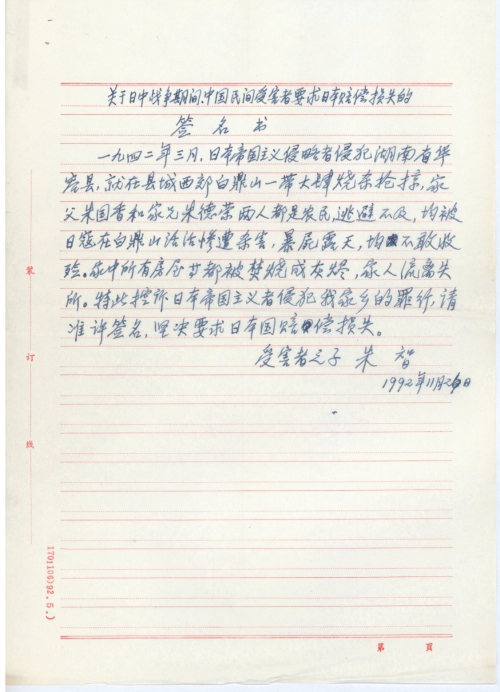 关于日中战争期间、中国民间受害者要求日本赔偿损失的
签名书
一九四二年三月，日本帝国主义侵略者侵犯湖南省华
容县，就在县城西部白鼎山一带大肆烧杀抢掠，家
父朱国香和家兄朱德荣两人都是农民，逃避不及，均被
日寇在白鼎山活活惨遭杀害，暴尸露天，均不敢收
殓。家中所有房屋都被焚烧成灰烬，家人流离失
所。特此控诉日本帝国主义者侵犯我家乡的罪行，请
准许签名，坚决要求日本国赔偿损失。
受害者之子 朱智
1992年11月2日
装
订
线
1701106)92.5.)
第 頁